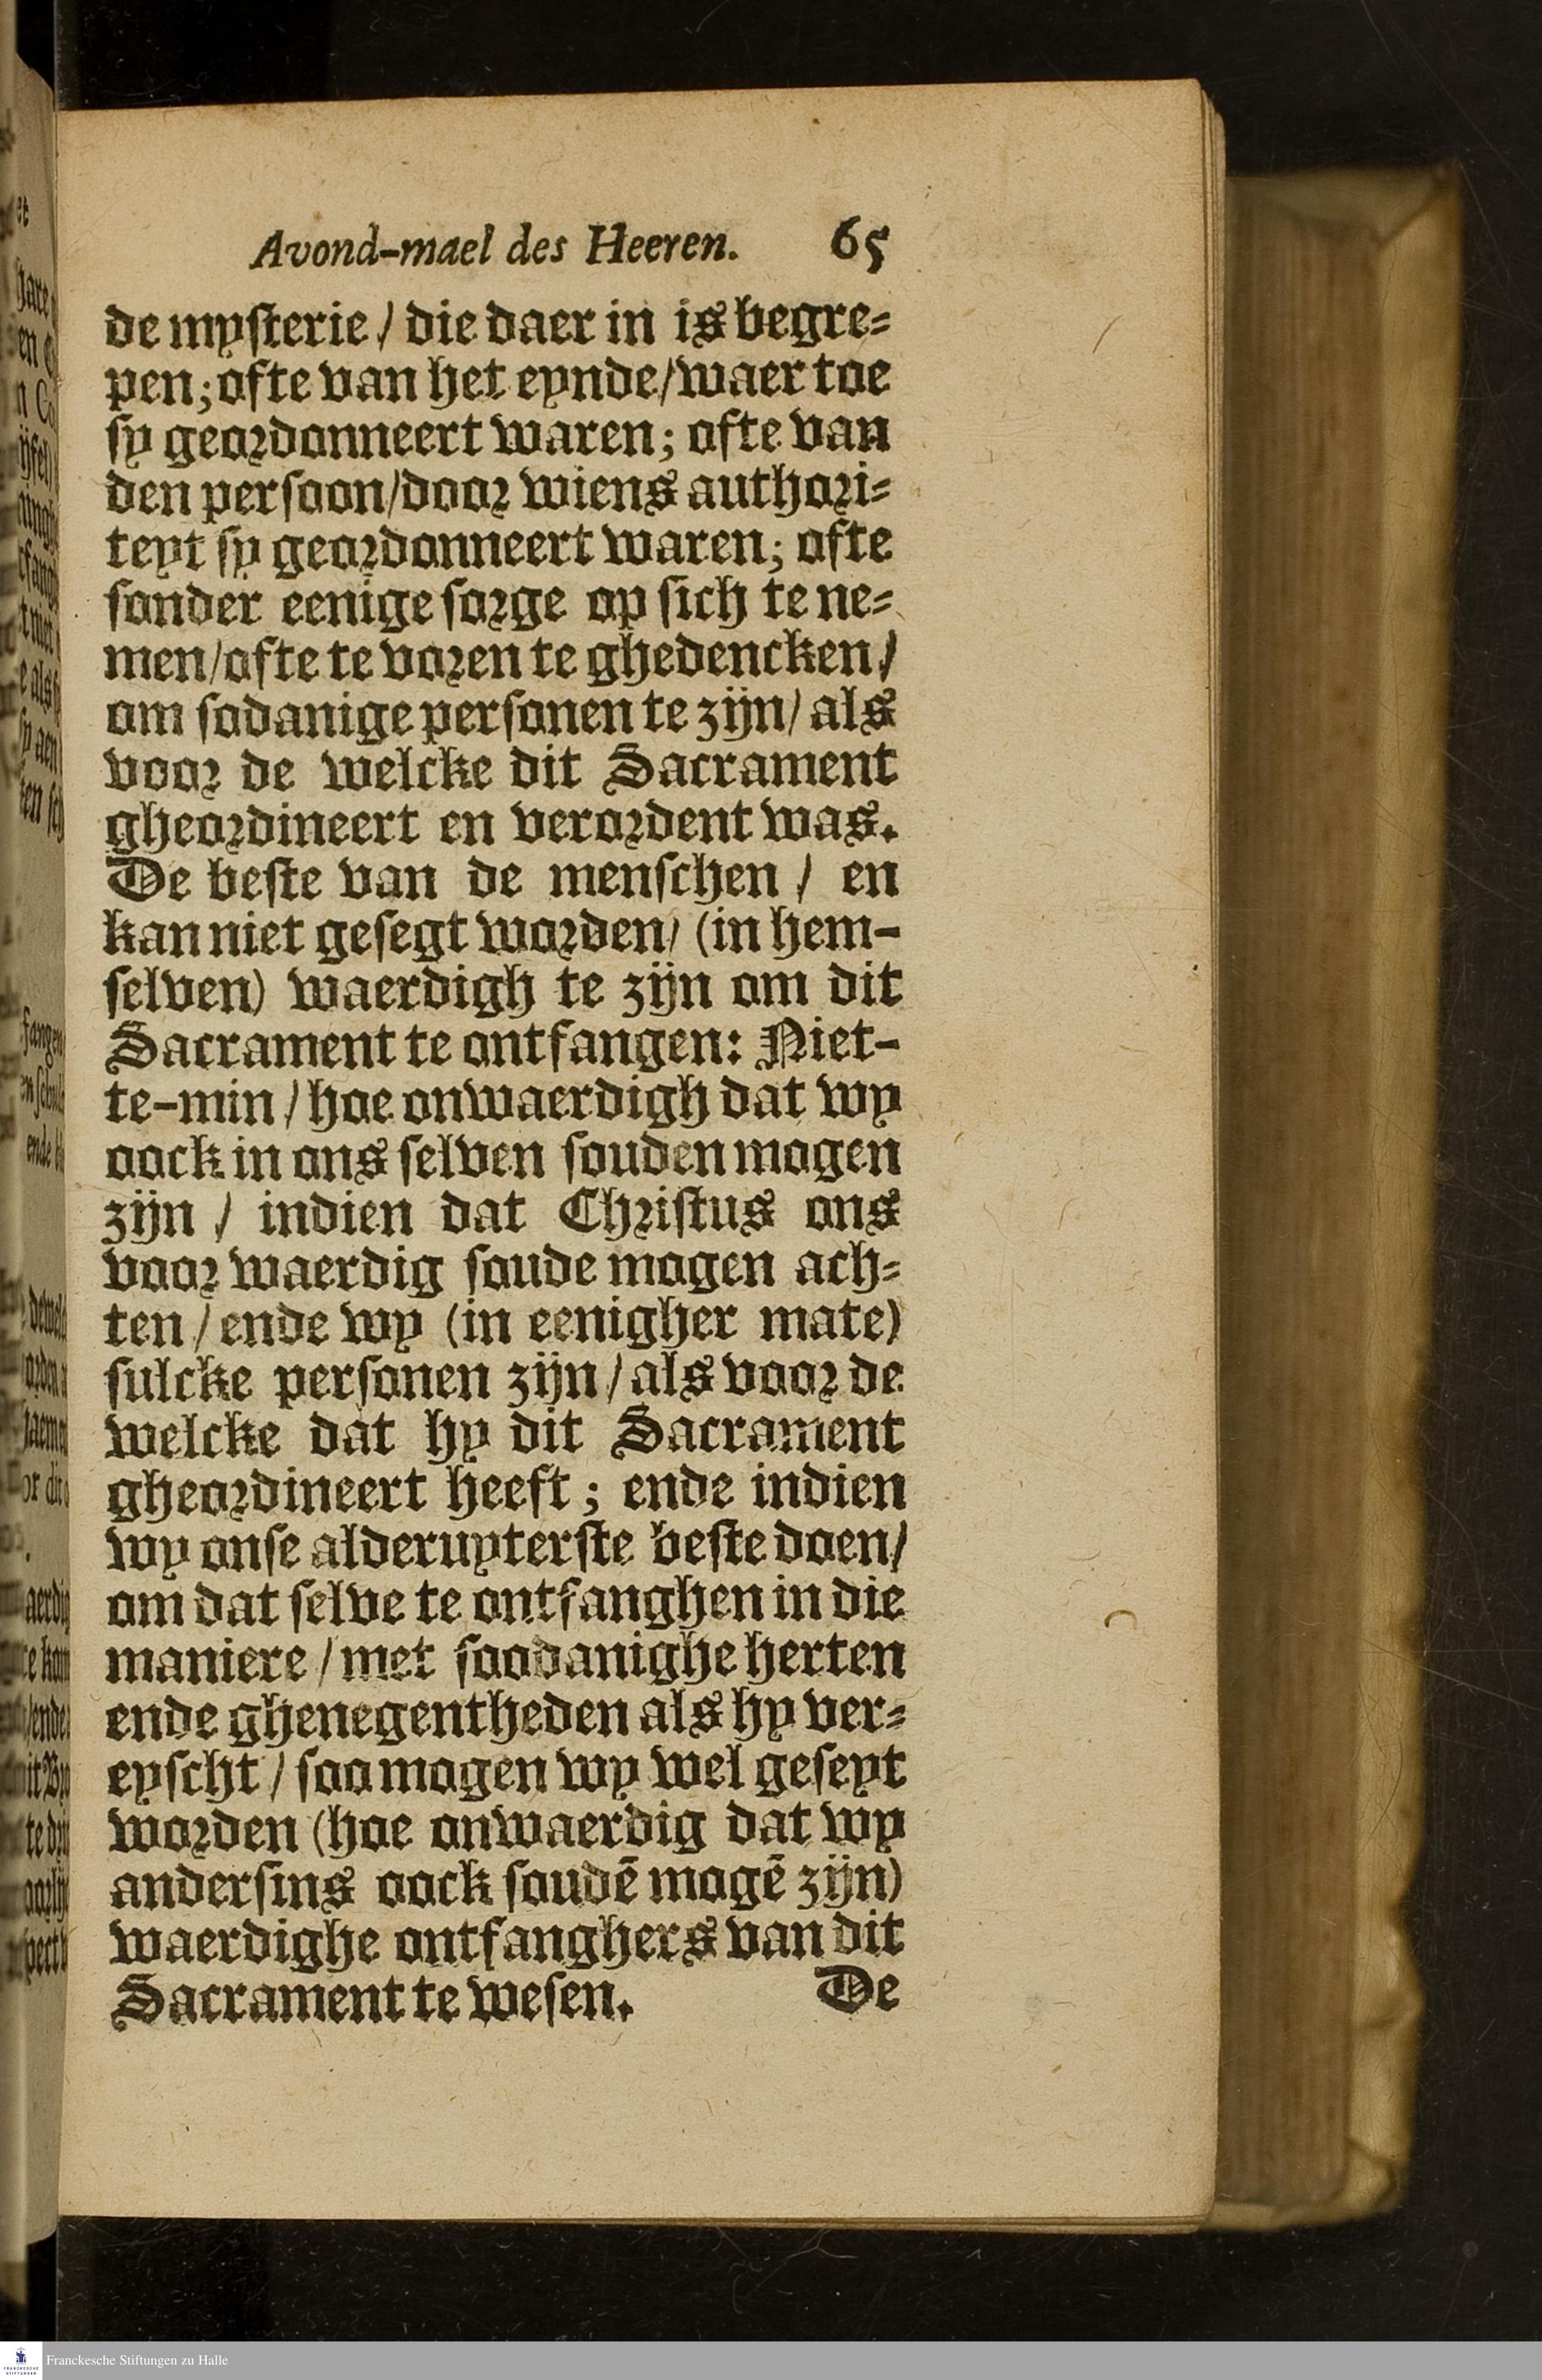 Avond-mael des Heeren. 65
de myſterie / die daer in is begre⸗
pen; ofte van het eynde / waer toe
ſy geordonneert waren; ofte van
den perſoon / door wiens authori⸗
teyt ſy geordonneert waren; ofte
ſonder eenige ſorge op ſich te ne⸗
men / ofte te voren te ghedencken /
om ſodanige perſonen te zijn / als
voor de welcke dit Sacrament
gheordineert en verordent was.
De beſte van de menſchen / en
kan niet geſegt worden / (in hem-
ſelven) waerdigh te zijn om dit
Sacrament te ontfangen: Niet-
te-min / hoe onwaerdigh dat wy
oock in ons ſelven ſouden mogen
zijn / indien dat Chriſtus ons
voor waerdig ſoude mogen ach⸗
ten / ende wy (in eenigher mate)
ſulcke perſonen zijn / als voor de
welcke dat hy dit Sacrament
gheordineert heeft; ende indien
wy onſe alderuyterſte beſte doen /
om dat ſelve te ontfanghen in die
maniere / met ſoodanighe herten
ende ghenegentheden als hy ver⸗
eyſcht / ſoo mogen wy wel geſeyt
worden (hoe onwaerdig dat wy
anderſins oock ſoudē mogē zijn)
waerdighe ontfanghers van dit
Sacrament te weſen. De
Franckesche Stiftungen zu Halle